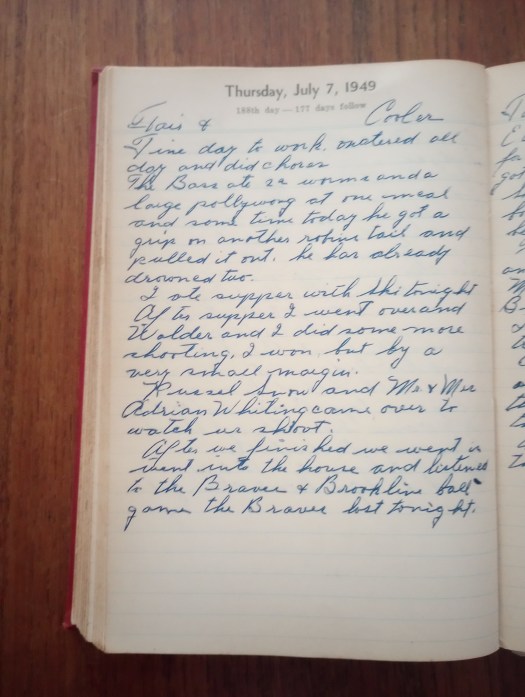 Thursday, July 7, 1949
188th day — 177 days follow
Fair & Cooler
Fine day to work, watered all
day and did chores
The Bass ate 22 worms and a
large pollywog at one meal
and some time today he got a
grip on another robins tail and
pulled it out. he has already
drowned two.
I ate supper with tonight
After supper I went over and
Walder and I did some more
shooting, I won but by a
very small margin.
Russel Snow and Mr & Mrs
Adrian Whiting came over to
watch us shoot.
After we finished we went in
went into the house and listened
to the Braves & Brookline ball
game the Braves lost tonight.